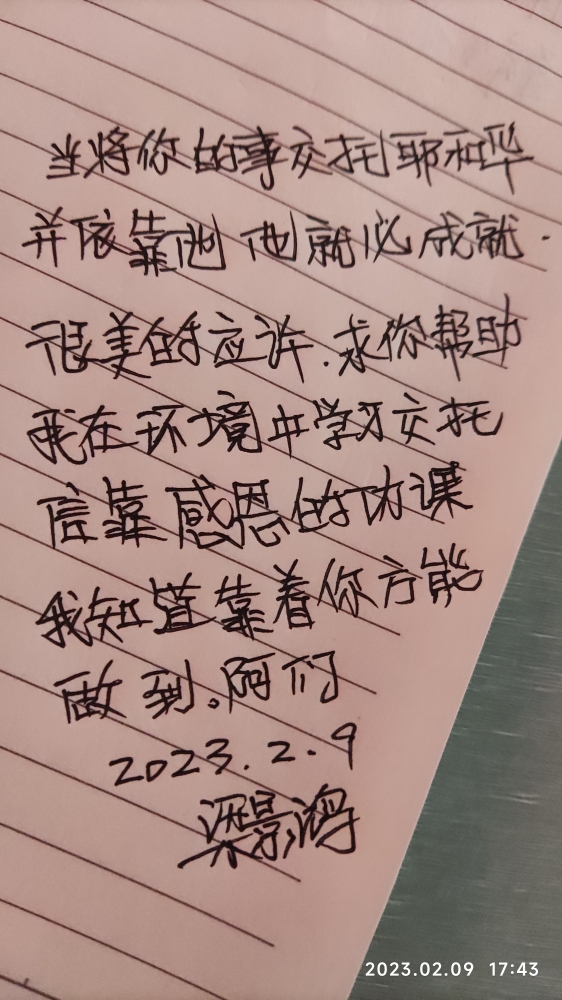 当将你的事交托耶和华
并依靠他 他就必成就.
很美的应许.求你帮助
我在环境中学习交托
信靠感恩的功课
我知道靠着你方能
做到。阿们
2023.2.9
梁景鸿
2023.02.09 17:43